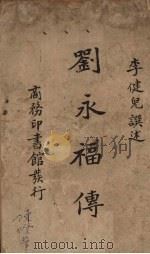 李健兒譔述
劉永福傳
商務印書館發行
www.duxiu.com